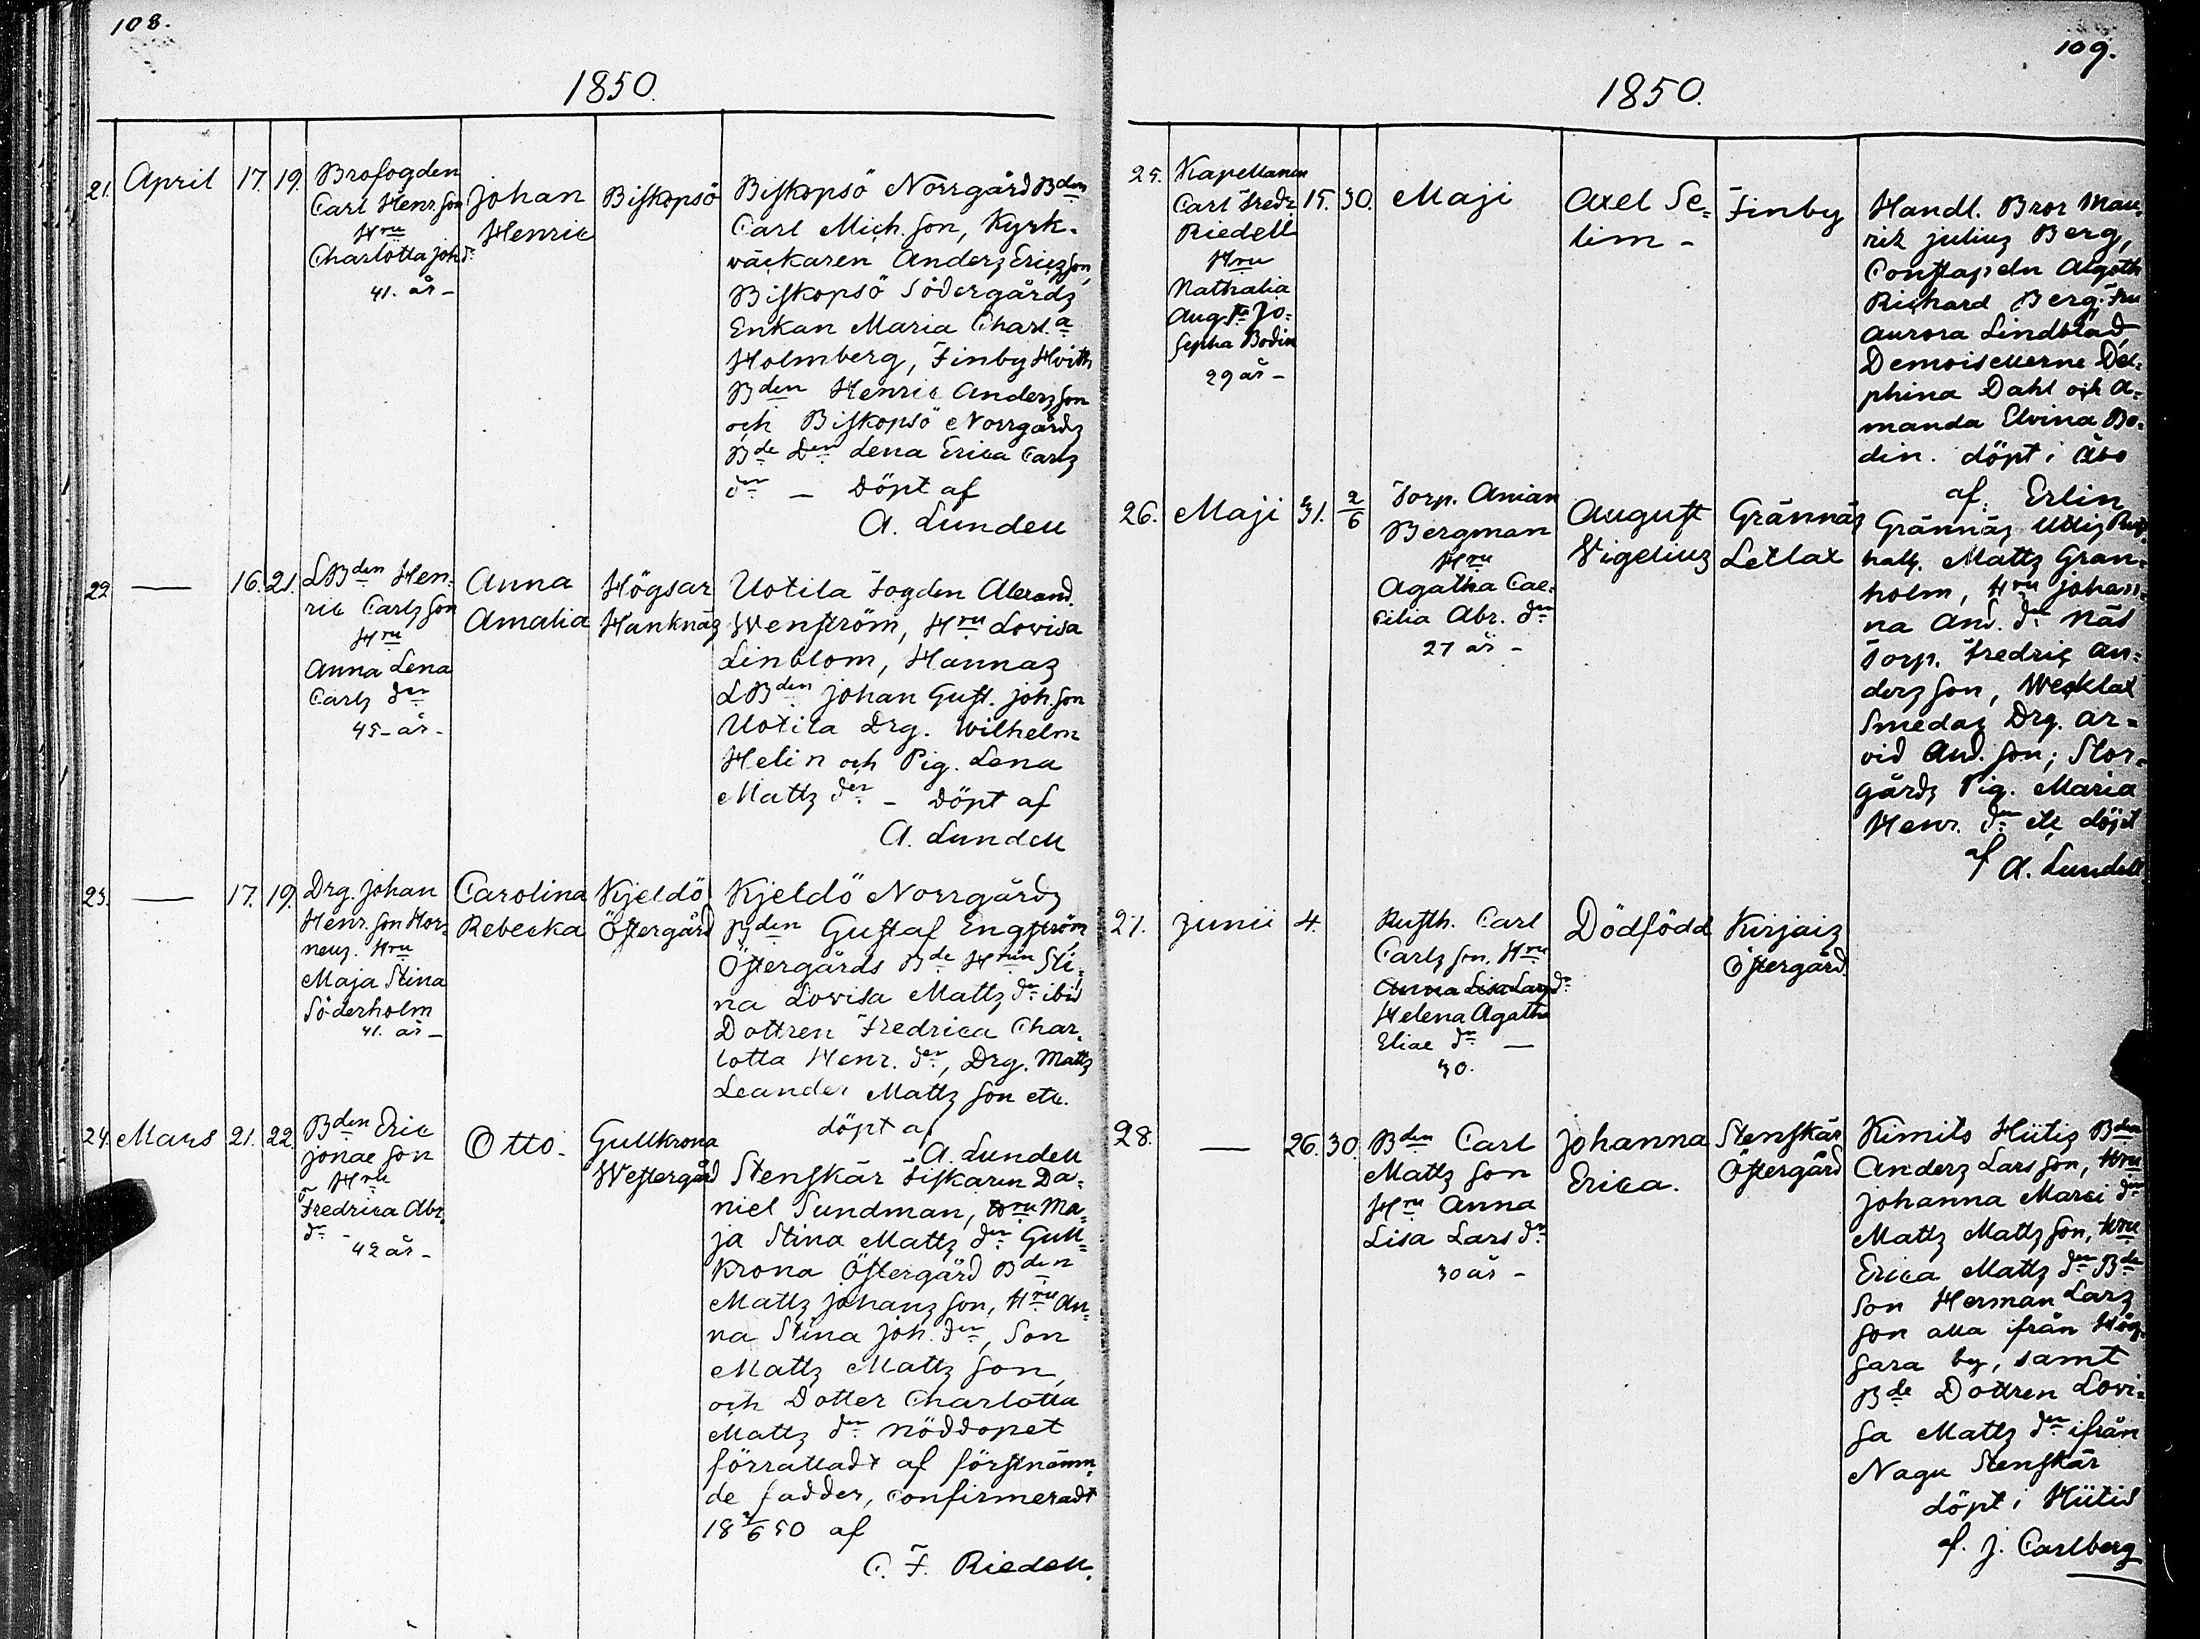 108.
1850.
21. April 17. 19. Brofogden
Carl Henr. son
Hru
Charlotta Joh. dr
41. år -
Johan
Henric
Biskopsö
Biskopsö Norrgård Bden
Carl Mich. son, Kyrk-
väckaren Anders Ericsson,
Biskopsö Södergårds
Enkan Maria Charl.a
Holmberg, Finby Hvith
Bden Henric Andersson
och Biskopsö Norrgårds
Bde Den Lena Erica Carls
dr - Döpt af
A. Lundell
22. — 16. 21. LBden Hen-
ric Carls son
Hru
Anna Lena
Carls dr
45 - år -
Anna
Amalia
Högsar
Hanknäs
Uotila Fogden Alexand.
Wenström, Hru Lovisa
Linblom, Hannas
LBden Johan Gust. Joh. son
Uotila Drg. Wilhelm
Helin och Pig. Lena
Matts dr - Döpt af
A. Lundell
23. — 17. 19. Drg. Johan
Henr. son Hor-
neus. Hru
Maja Stina
Söderholm
41. år -
Carolina
Rebecka
Kjeldö
Östergård
Kjeldö Norrgårds
Bden Gustaf Engström
Östergårds Bde Hrun Sti-
na Lovisa Matts dr ibid
Dottren Fredrica Char-
lotta Henr. dr, Drg. Matts
Leander Matts son etc.
döpt af
A. Lundell
24. Mars 21. 22. Bden Eric
Jonae son
Hru
Fredrica Abr.
dr -
42 år -
Otto.
Gullkrona
Westergård
Stenskär Fiskaren Da-
niel Sundman, Hru Ma-
ja Stina Matts dr Gull-
krona Östergård Bden
Matts Johans son, Hru An-
na Stina Joh. dr, Son
Matts Matts son,
och Dotter Charlotta
Matts dr nöddopet
förrättadt af förstnämn-
de fadder, confirmeradt
18 2/6 50 af
C. F. Riedell.
109.
1850.
25. Kapellanen
Carl Fredr.
Riedell
Hru
Nathalia
Aug.sta Jo-
sepha Bodin
29 år -
15. 30. Maji
Axel Se-
lim -
Finby
Handl. Bror Mau-
ritz Julius Berg,
Constapeln Algoth
Richard Berg. Fru
Aurora Lindblad,
Demoisellerne Del-
phina Dahl och A-
manda Elvina Bo-
din. döpt i Åbo
af. Erlin
26. Maji 31. 2/6 Torp. Anian
Bergman
Hru
Agatha Cae-
cilia Abr. dr
27 år -
August
Vigelius
Grännäs
Letlax
Grännäs
hall. Matts Gran-
holm, Hru Johan-
na And. dr Näs
Torp. Fredric An-
ders son, Wecklax
Smedas Drg. Ar-
vid And. son; Stor-
gårds Pig. Maria
Henr. dr etc döpt
af A. Lundell
27. Junii 4. Rusth. Carl
Carls son. Hru
Anna Lisa Lars dr
Helena Agatha
Eliae dr —
30.
Dödfödd
Kirjais
Östergård.
28. — 26. 30. Bden Carl
Matts son
Hru Anna
Lisa Lars dr
30 år -
Johanna
Erica.
Stenskär
Östergård
Kimito Hitis Bden
Anders Lars son, Hru
Johanna Marci dr
Matts Matts son, Hru
Erica Matts dr Bde
Son Herman Lars
son alla ifrån Hög-
sara by, samt
Bde Dottren Lovi-
sa Matts dr ifrån
Nagu Stenskär
döpt i Hitis
af. J. Carlberg